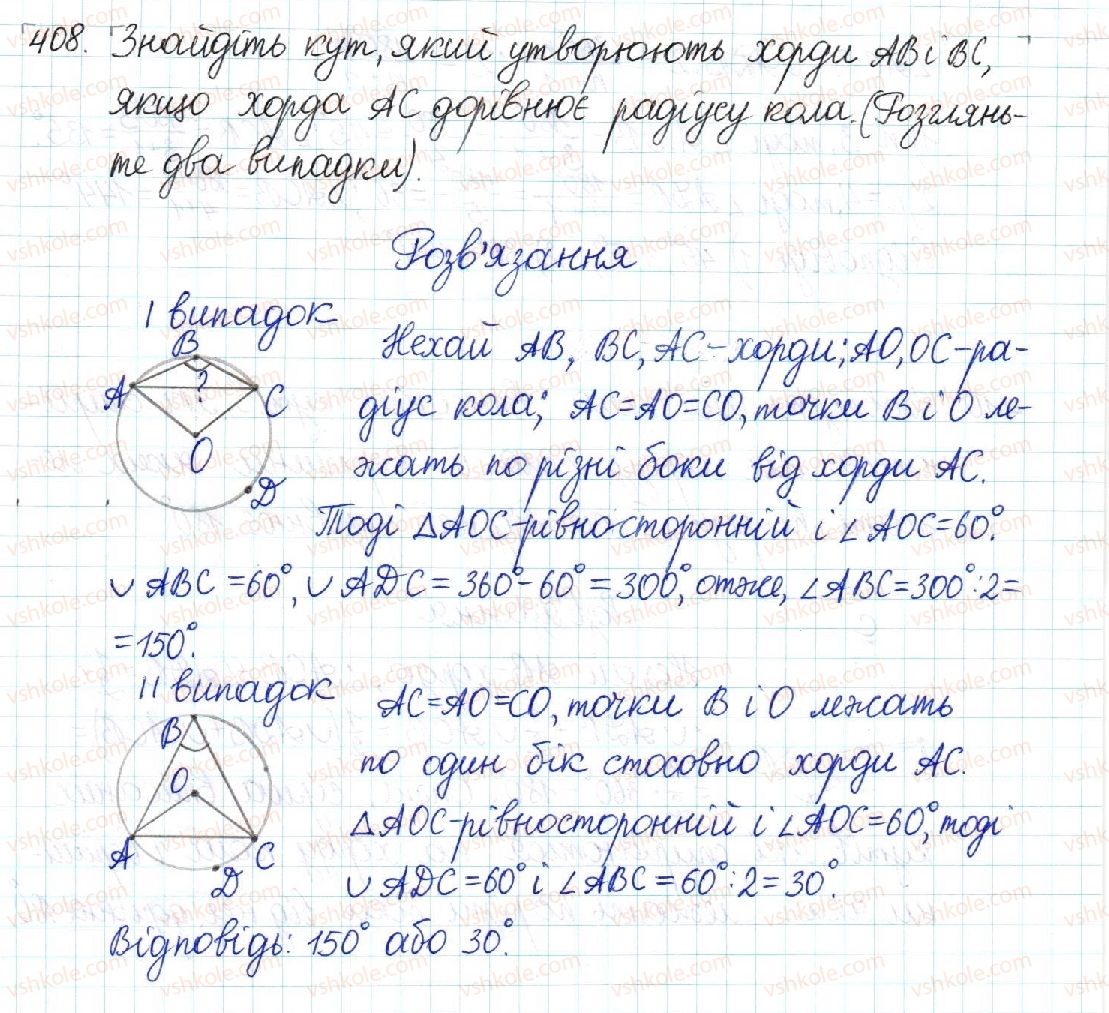 408. Знайдіть кут, який утворюють хорди AB і BC,
якщо хорда AC дорівнює радіусу кола. (Розглянь-
те два випадки).
Розв'язання
I випадок
B
A
?
C
O
D
Нехай AB, BC, AC – хорди; AO, OC – ра-
діус кола; AC=AO=CO, точки B і O ле-
жать по різні боки від хорди AC.
Тоді △AOC – рівносторонній і ∠AOC=60°.
∪ABC = 60°, ∪ADC = 360° – 60° = 300°, отже, ∠ABC = 300° : 2 =
= 150°.
II випадок
B
O
A
C
D
AC=AO=CO, точки B і O лежать
по один бік стосовно хорди AC.
△AOC – рівносторонній і ∠AOC = 60°, тоді
∪ADC = 60° і ∠ABC = 60° : 2 = 30°.
Відповідь: 150° або 30°.
vshkole.com